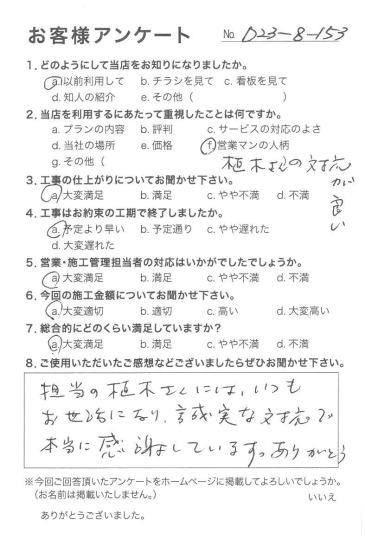 お客様アンケート　No. D23-8-153
1. どのようにして当店をお知りになりましたか。
a. 以前利用して　b. チラシを見て　c. 看板を見て
d. 知人の紹介　e. その他（　　　　　　）
2. 当店を利用するにあたって重視したことは何ですか。
a. プランの内容　b. 評判　c. サービスの対応のよさ
d. 当社の場所　e. 価格　f. 営業マンの人柄
g. その他（　植木さんの対応が良い
3. 工事の仕上がりについてお聞かせ下さい。
a. 大変満足　b. 満足　c. やや不満　d. 不満
4. 工事はお約束の工期で終了しましたか。
a. 予定より早い　b. 予定通り　c. やや遅れた
d. 大変遅れた
5. 営業・施工管理担当者の対応はいかがでしたでしょうか。
a. 大変満足　b. 満足　c. やや不満　d. 不満
6. 今回の施工金額についてお聞かせ下さい。
a. 大変適切　b. 適切　c. 高い　d. 大変高い
7. 総合的にどのくらい満足していますか?
a. 大変満足　b. 満足　c. やや不満　d. 不満
8. ご使用いただいたご感想などございましたらぜひお聞かせ下さい。
担当の植木さんには、いつも
お世話になり、誠実な対応で
本当に感謝しています。ありがとう
※今回ご回答頂いたアンケートをホームページに掲載してよろしいでしょうか。
（お名前は掲載いたしません。）　いいえ
ありがとうございました。